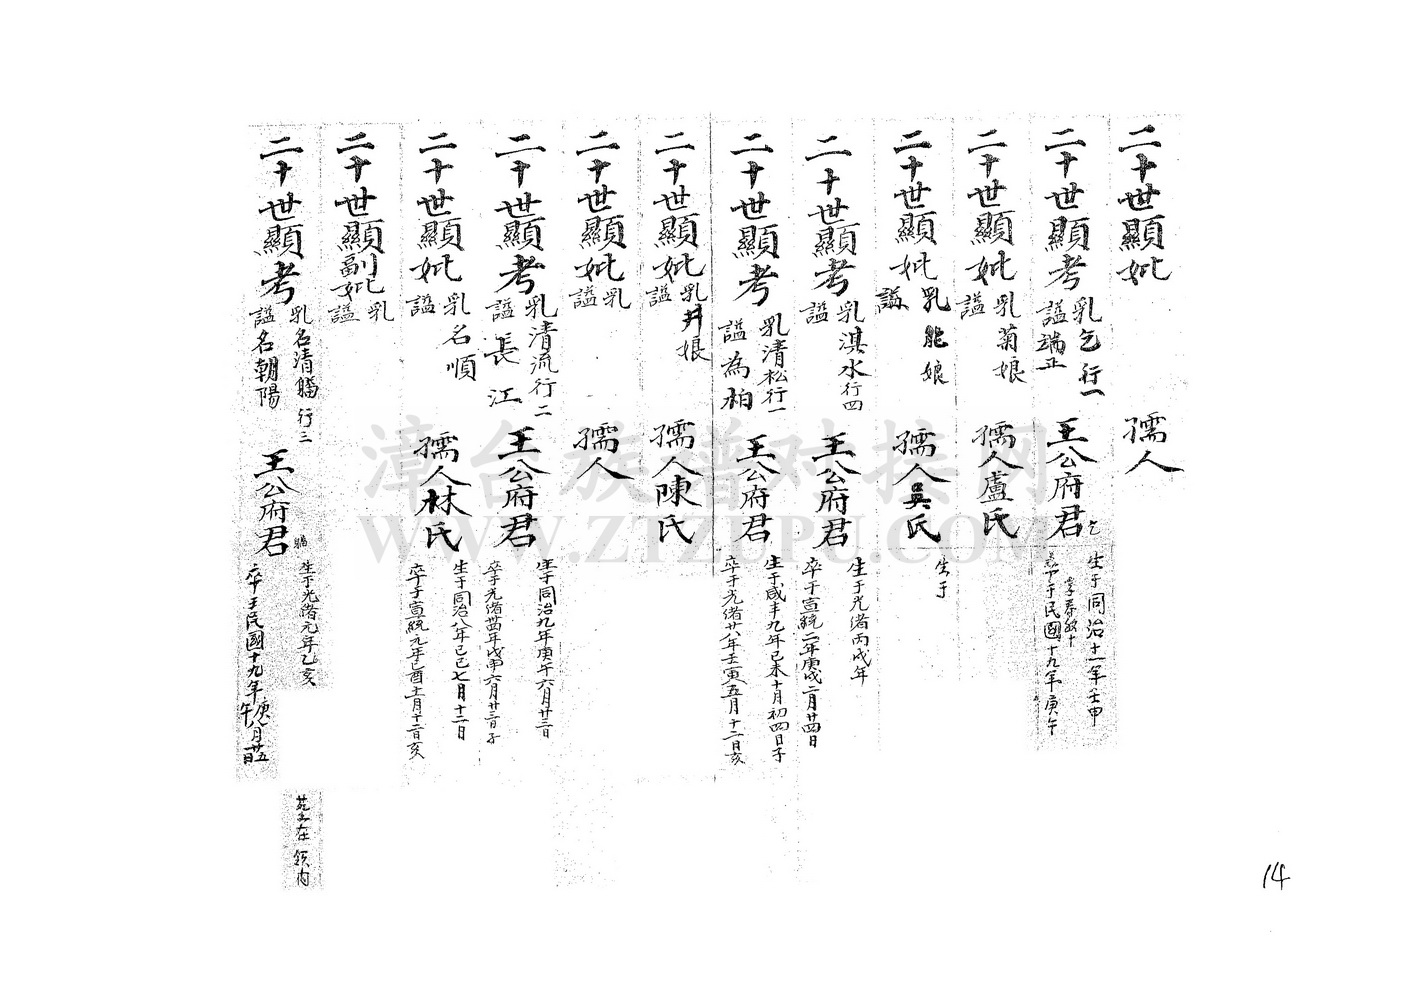 二十世顯妣 孺人
二十世顯考 乳乞行一 謚端正 王公府君 乞
生于同治十一年壬申
享寿 十
于民國十九年庚午
二十世顯妣 乳菊娘 謚 孺人盧氏
二十世顯妣 乳能娘 謚 孺人吳氏
生于
二十世顯考 乳淇水行四 謚 王公府君
生于光緒丙戌年
卒于宣統二年庚戌二月廿四日
二十世顯考 乳清松行一 謚為柏 王公府君
生于咸丰九年己未十月初四日子
卒于光緒廿八年壬寅五月十二日亥
二十世顯妣 乳井娘 謚 孺人陳氏
二十世顯妣 乳 謚 孺人
二十世顯考 乳清流行二 謚長江 王公府君
生于同治九年庚午六月廿三日
卒于光緒卅四年戊申六月廿三日子
二十世顯妣 乳名順 謚 孺人林氏
生于同治八年己巳七月十二日
卒于宣統元年己酉十一月十二日亥
二十世顯副妣 乳 謚
二十世顯考 乳名清 行三 謚名朝陽 王公府君
生于光緒元年乙亥
卒于民國十九年庚午八月廿五日
在 内
14
漳台族譜对接网
WWW.ZTZUPU.COM